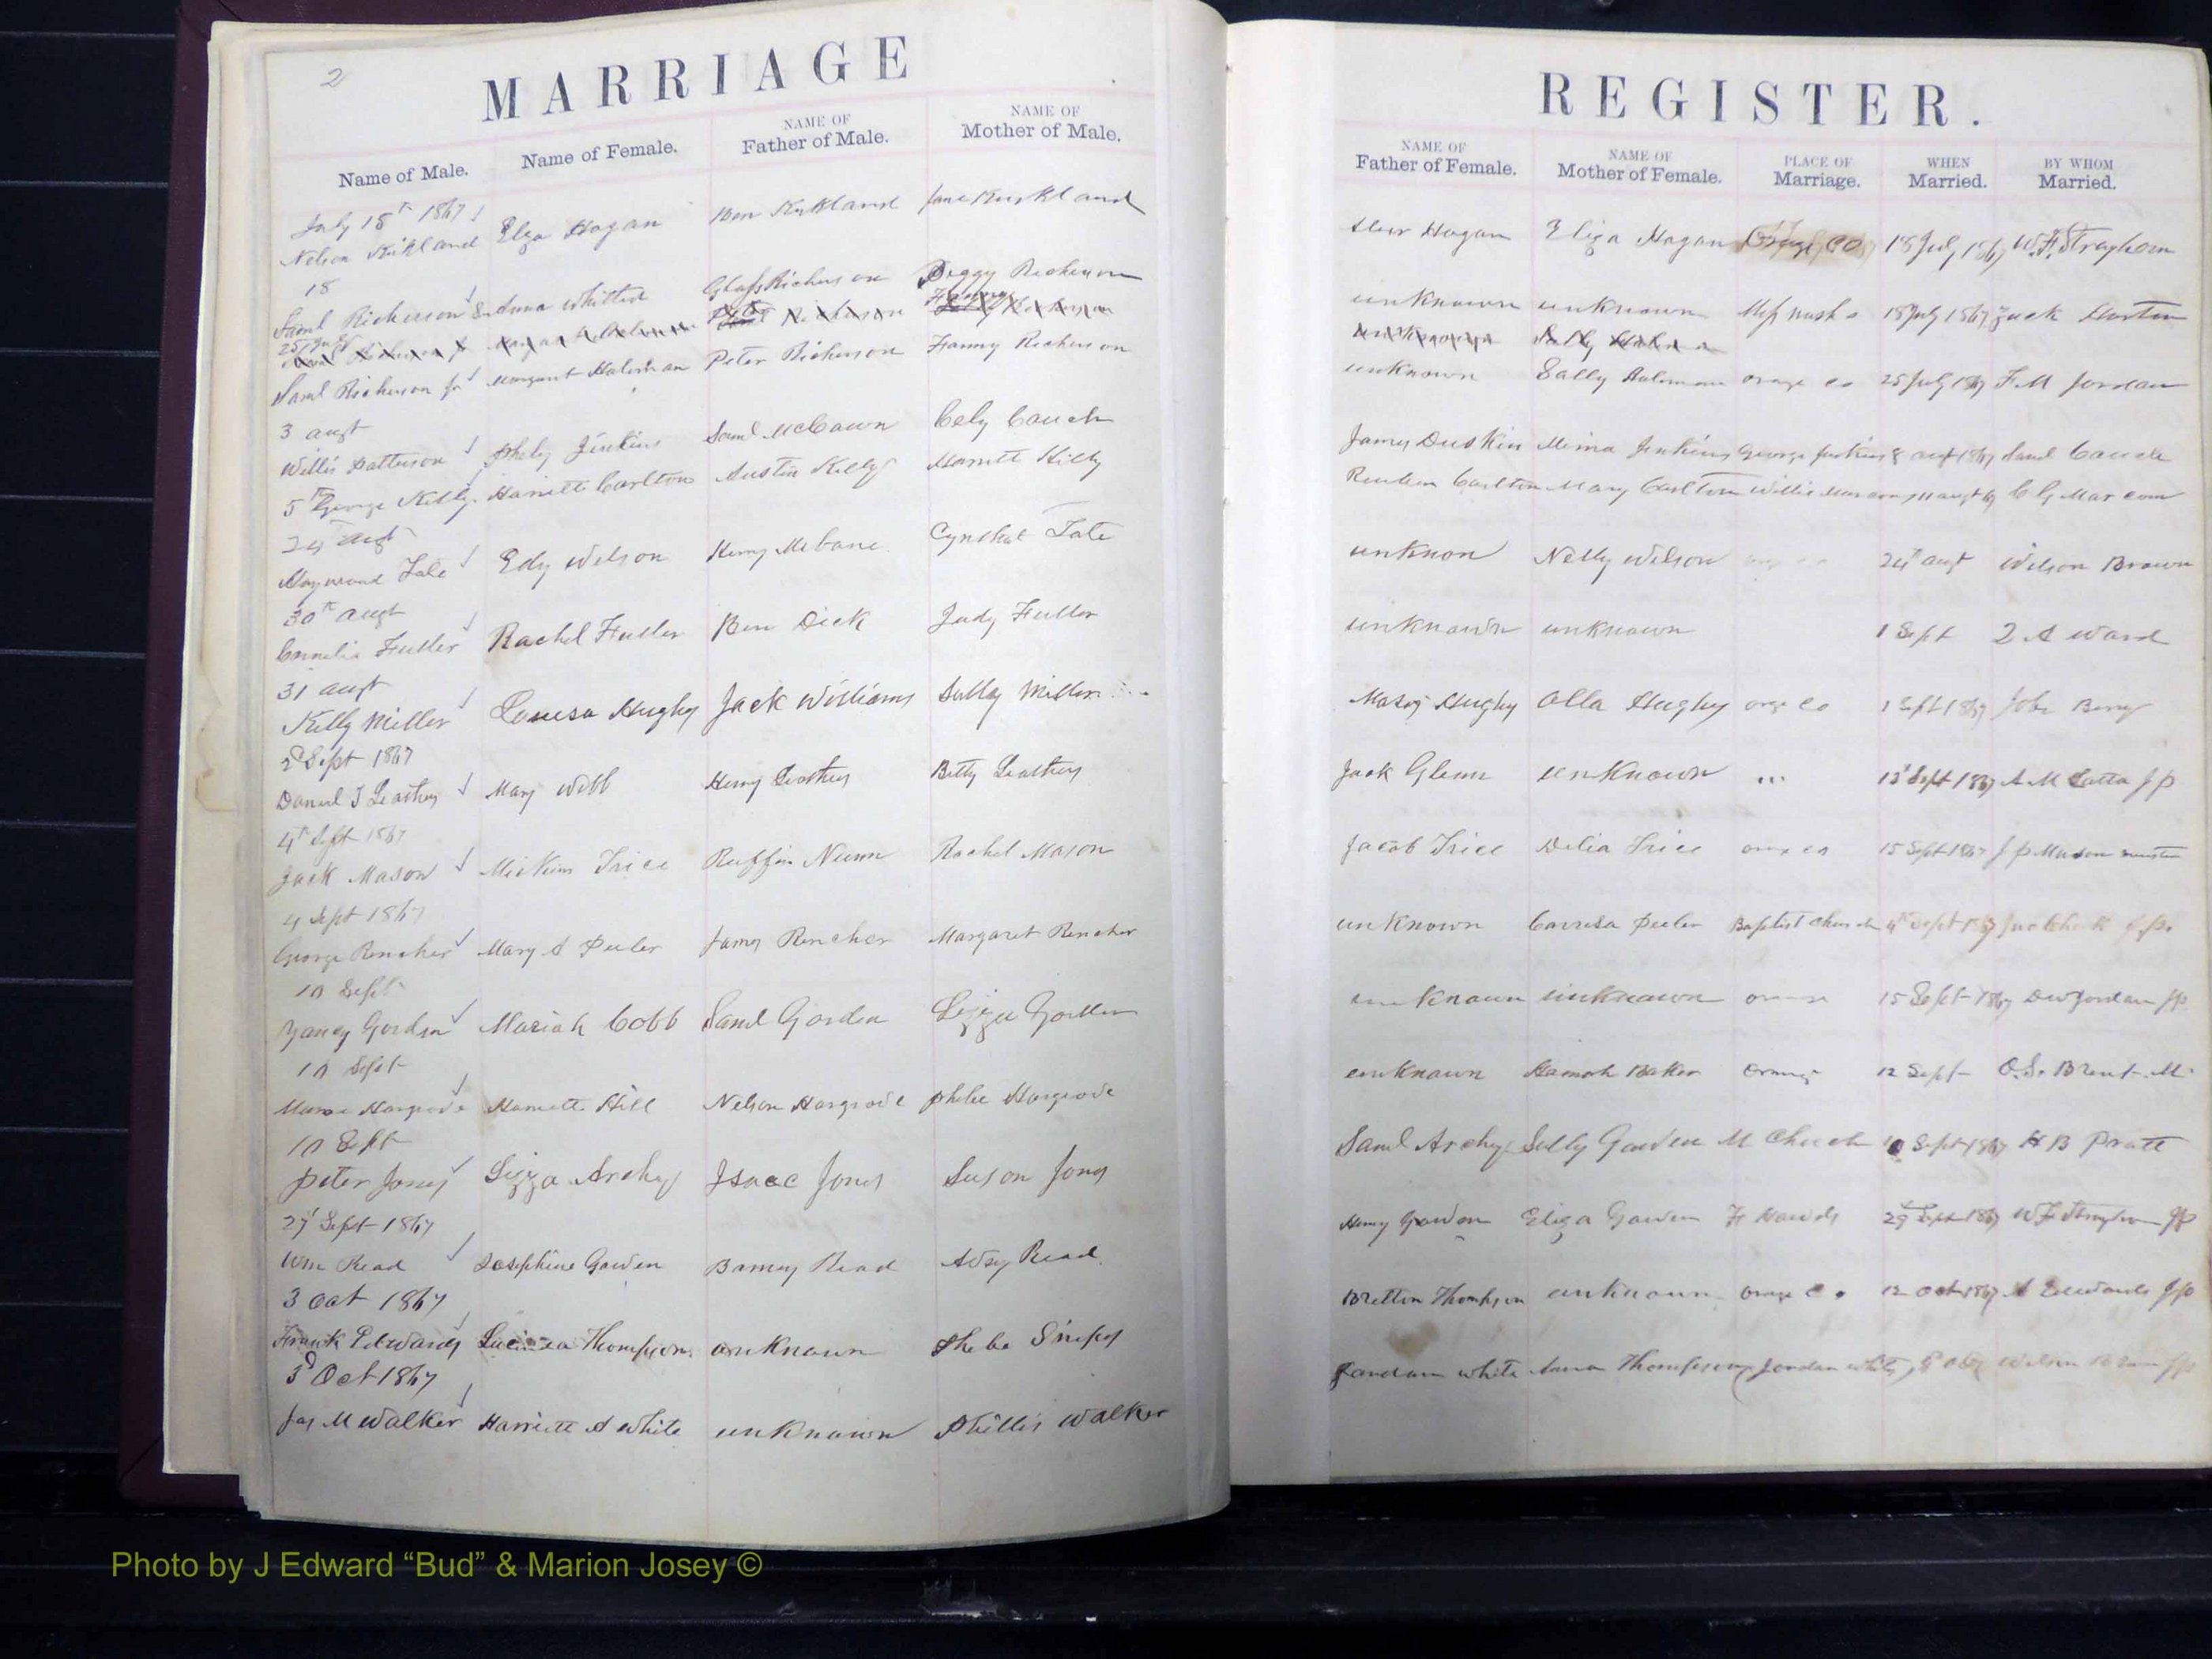 2
MARRIAGE
Name of Male. Name of Female. NAME OF Father of Male. NAME OF Mother of Male.
July 18th 1867
Nelson Kirkland Elza Hogan Ben Kirkland Jane Kirkland
18
Saml Richerson & Anna Whitted Glass Richerson Peggy Richerson
25 July
Saml Richerson Jr Margaret Holeman Peter Richerson Fanny Richerson
3 augt
Willis Patterson Phely Jenkins Saml McCawn Cely Couch
5th George Kelly Harriett Carlton Austin Kelly Harriett Kelly
24 augt
Haywood Tate Edy Wilson Henry Mebane Cynthat Tate
30th augt
Cornelis Fuller Rachel Fuller Ben Dick Judy Fuller
31 augt
Kelly Miller Louisa Hughy Jack Williams Sally Miller
2d Sept 1867
Daniel J Leathey Mary Webb Henry Leathey Betty Leathey
4th Sept 1867
Jack Mason Trice Ruffin Nunn Rachel Mason
4 Sept 1867
George Rencher Mary A Peeler James Rencher Margaret Rencher
10 Sept
Yancy Gorden Mariah Cobb Saml Gorden Lizza Gorden
10 Sept
Hargrove Harriett Hill Nelson Hargrove Phebe Hargrove
10 Sept
Peter Jones Lizza Archy Isaac Jones Suson Jones
27 Sept 1867
Wm Read Josephine Gowen Barney Read Adsy Read
3 Oct 1867
Frank Edwards Thompson unknown Pheba Snipes
3d Oct 1867
Jas M Walker Harriett A White unknown Phillis Walker
REGISTER.
NAME OF Father of Female. NAME OF Mother of Female. PLACE OF Marriage. WHEN Married. BY WHOM Married.
Hogan Eliza Hogan Orange Co 18 July 1867 W.F. Strayhorn
unknown unknown 18 July 1867 Jack Horton
unknown Sally Holeman
unknown Sally Holeman orange co 25 July 1867 F.M Jordan
James Duskin Mima Jenkins George Jenkins augt 1867 Saml Couch
Reuben Carlton Mary Carlton Willis Marcom 11 augt 67 C G Marcom
unknon Nelly Wilson orge co 24th augt Wilson Brown
unknown unknown 1 Sept Ward
Hughy Olla Hughy orge Co 1 Sept 1867 Jobe Berry
Jack Glenn unknown " 13 Sept 1867 A M Latta JP
Jacob Trice Delia Trice orge co 15 Sept 1867 J P Mason minister
unknown Peeler Baptist Church 4th Sept 1867
unknown unknown orange 15 Sept 1867 DW Jordan JP
unknown Hannah Baker Orange 12 Sept O.S. Brent M
Saml Archy Sally Gowen M Church 10 Sept 1867 H B Pratt
Henry Gowen Eliza Gowen 29 Sept 1867 WF Strayhorn JP
Bretton Thompson unknown orange Co 12 Oct 1867 A Edwards JP
Jordan White Anna Thompson Jordan White Wilson Brown JP
Photo by J Edward “Bud” & Marion Josey ©